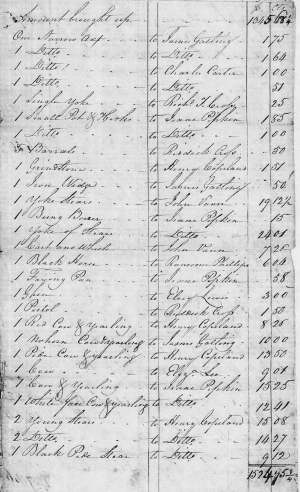 Amount brought up 1345 68¼
One Narrow Axe to James Gatling 1 75
1 Ditto to Ditto 1 64
1 Ditto to Charles Carter 1 00
1 Ditto to Ditto 51
1 Single Yoke to 25
1 Small Pot & Hooks to Isaac Pipkin 1 55
1 Ditto to Ditto 1 00
5 Barrels to 50
1 Grindstone to Henry Copeland 1 51
1 Iron Wedge to James Gatling 50
1 Yoke Stears to John Vann 19 12½
1 Bung Borer to Isaac Pipkin 15
1 Yoke of Stears to Ditto 24 01
1 Cart and Wheels to John Vann 7 25
1 Black Horse to Ransom Phillips 60
1 Frying Pan to Isaac Pipkin 58
1 to Lewis 5 00
1 Pistol to 1 50
1 Red Cow & yearling to Henry Copeland 8 26
1 Cow & yearling to James Gatling 10 00
1 Pide Cow & yearling to Henry Copeland 13 50
1 Cow to Lee 9 01
1 Cow & Yearling to Isaac Pipkin 15 25
1 White face Cow & yearling to Ditto 12 41
2 Young Stears to Henry Copeland 15 08
2 Ditto to Ditto 14 27
1 Black Pide Stear to Ditto 9 12